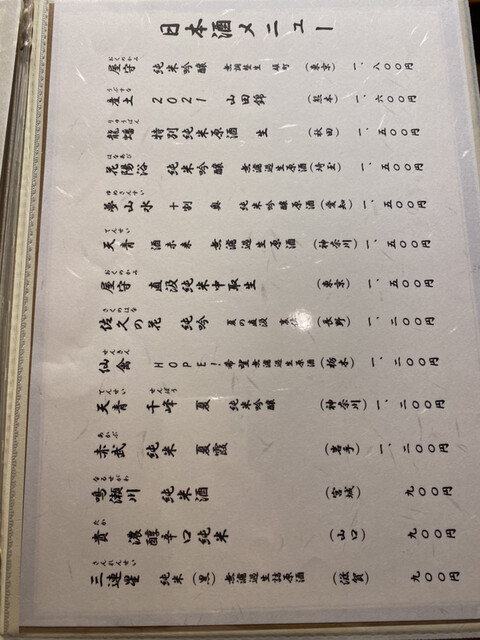 日本酒メニュー
おくのかみ
屋守 純米吟醸 無調整生 雄町 (東京) 一、八〇〇円
うぶすな
産土 2021 山田錦 (熊本) 一、六〇〇円
りゅうばん
龍蟠 特別純米原酒 生 (秋田) 一、五〇〇円
はなあび
花陽浴 純米吟醸 無濾過生原酒 (埼玉) 一、五〇〇円
ゆめさんすい
夢山水 十割 奥 純米吟醸原酒 (愛知) 一、五〇〇円
てんせい
天青 酒未来 無濾過生原酒 (神奈川) 一、五〇〇円
おくのかみ
屋守 直汲純米中取生 (東京) 一、五〇〇円
さくのはな
佐久の花 純吟 夏の直汲 (長野) 一、二〇〇円
せんきん
仙禽 HOPE!希望 無濾過生原酒 (栃木) 一、二〇〇円
てんせい せんぽう
天青 千峰 夏 純米吟醸 (神奈川) 一、二〇〇円
あかぶ
赤武 純米 夏霞 (岩手) 一、二〇〇円
なるせがわ
鳴瀬川 純米酒 (宮城) 九〇〇円
たか
貴 濃醇辛口純米 (山口) 九〇〇円
さんれんせい
三連星 純米(黒) 無濾過生詰原酒 (滋賀) 九〇〇円